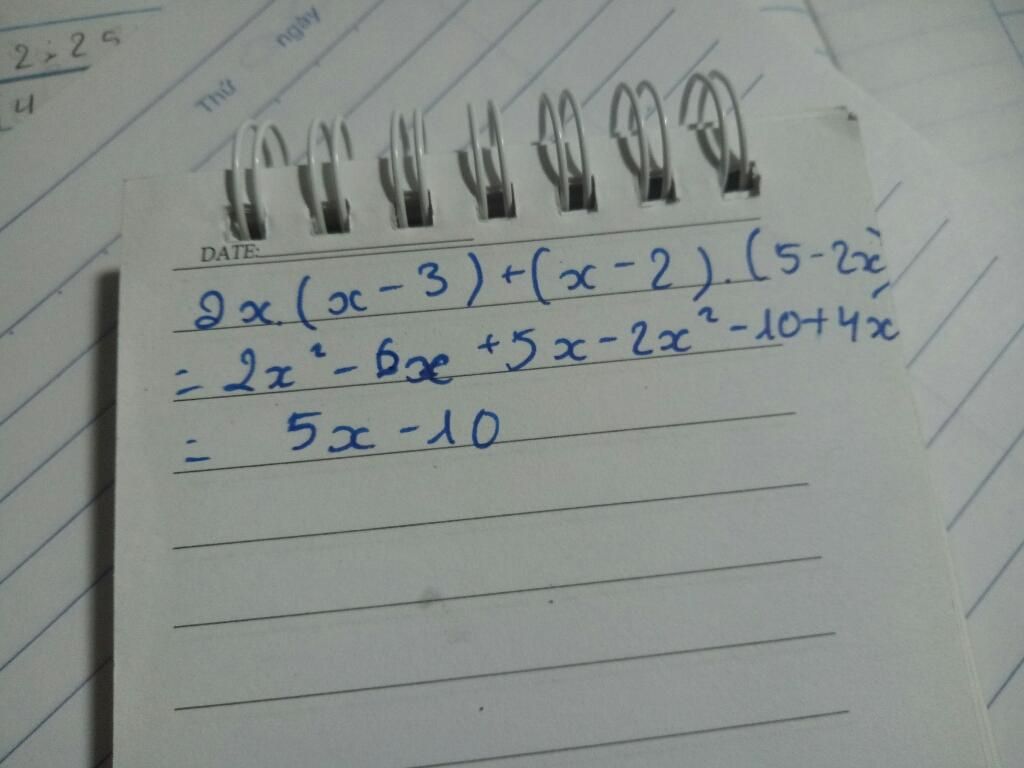 2 : 2 5
4
Thứ
ngày
DATE:
2x.(x-3)+(x-2).(5-2x)
= 2x² - 6x + 5x - 2x² - 10 + 4x
= 5x - 10